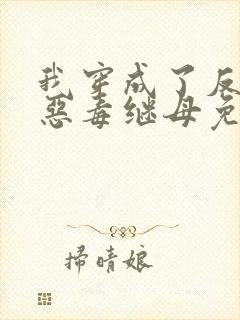 我穿成了反
恶毒继母免
掃晴娘